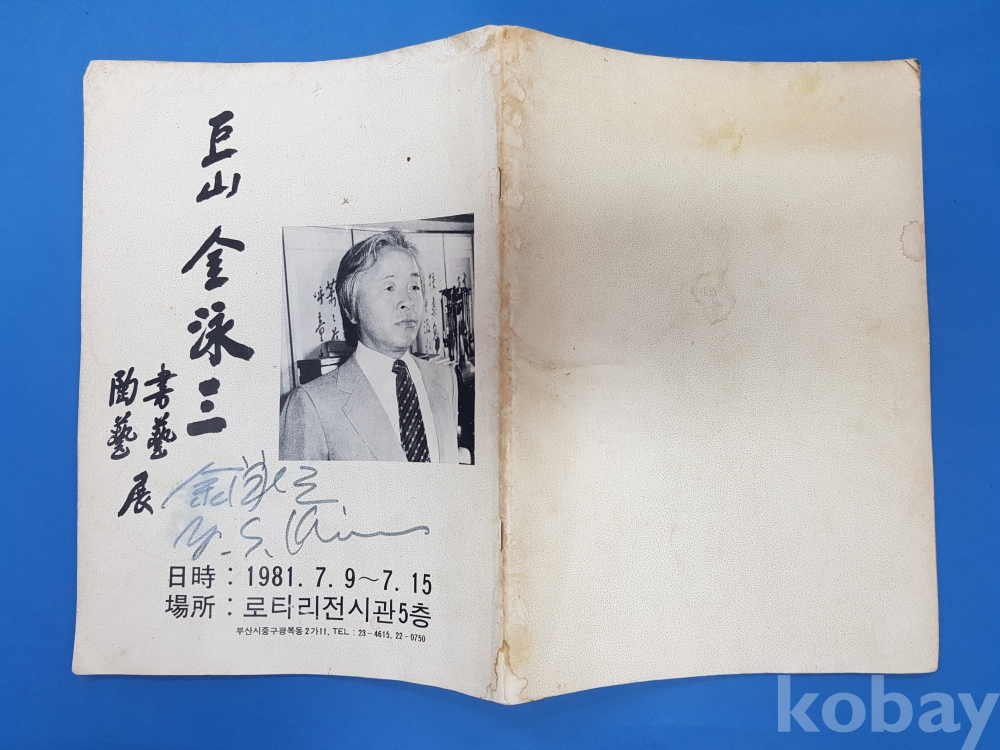 巨山 金泳三
書藝
陶藝
展
Y. S. Kim
日時 : 1981. 7. 9~7. 15
場所 : 로타리전시관5층
부산시중구광복동2가11, TEL : 23-4615, 22-0750
kobay